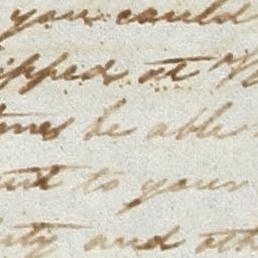 you could
ipped at
times be able
to your
and oth